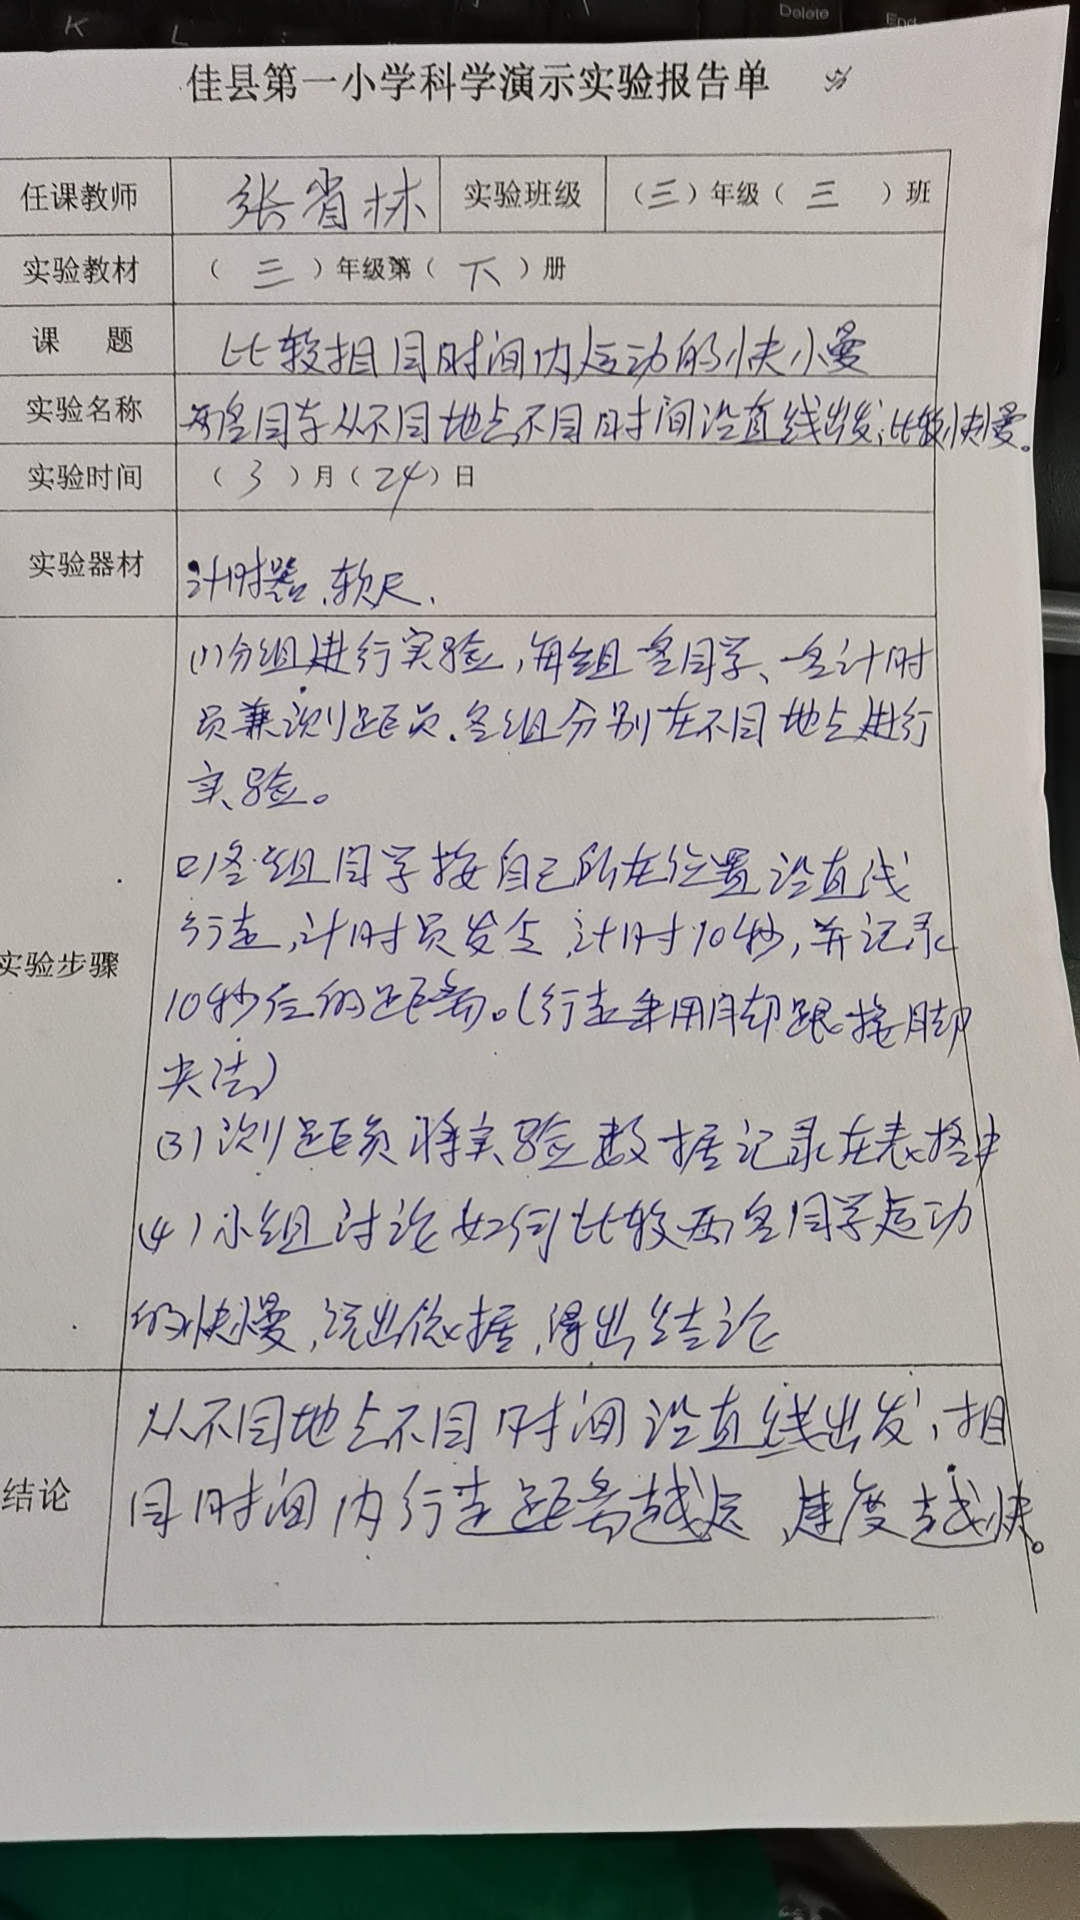 K L Delete End
佳县第一小学科学演示实验报告单
任课教师 张省林 实验班级 （三）年级（三）班
实验教材 （三）年级第（下）册
课 题 比较相同时间内运动的快慢
实验名称 两名同学从不同地点不同时间沿直线出发，比较快慢。
实验时间 （3）月（24）日
实验器材 计时器、软尺、
实验步骤
(1)分组进行实验，每组 名同学、一名计时
员兼测距员．各组分别在不同地点进行
实验。
(2)各组同学按自己所在位置沿直线
行走，计时员发令，计时10秒，并记录
10秒后的距离。(行走采用脚跟接脚
尖法)
(3)测距员将实验数据记录在表格中
(4)小组讨论如何比较两名同学运动
的快慢，说出依据，得出结论
结论
从不同地点不同时间沿直线出发，相
同时间内行走距离越远，速度越快。